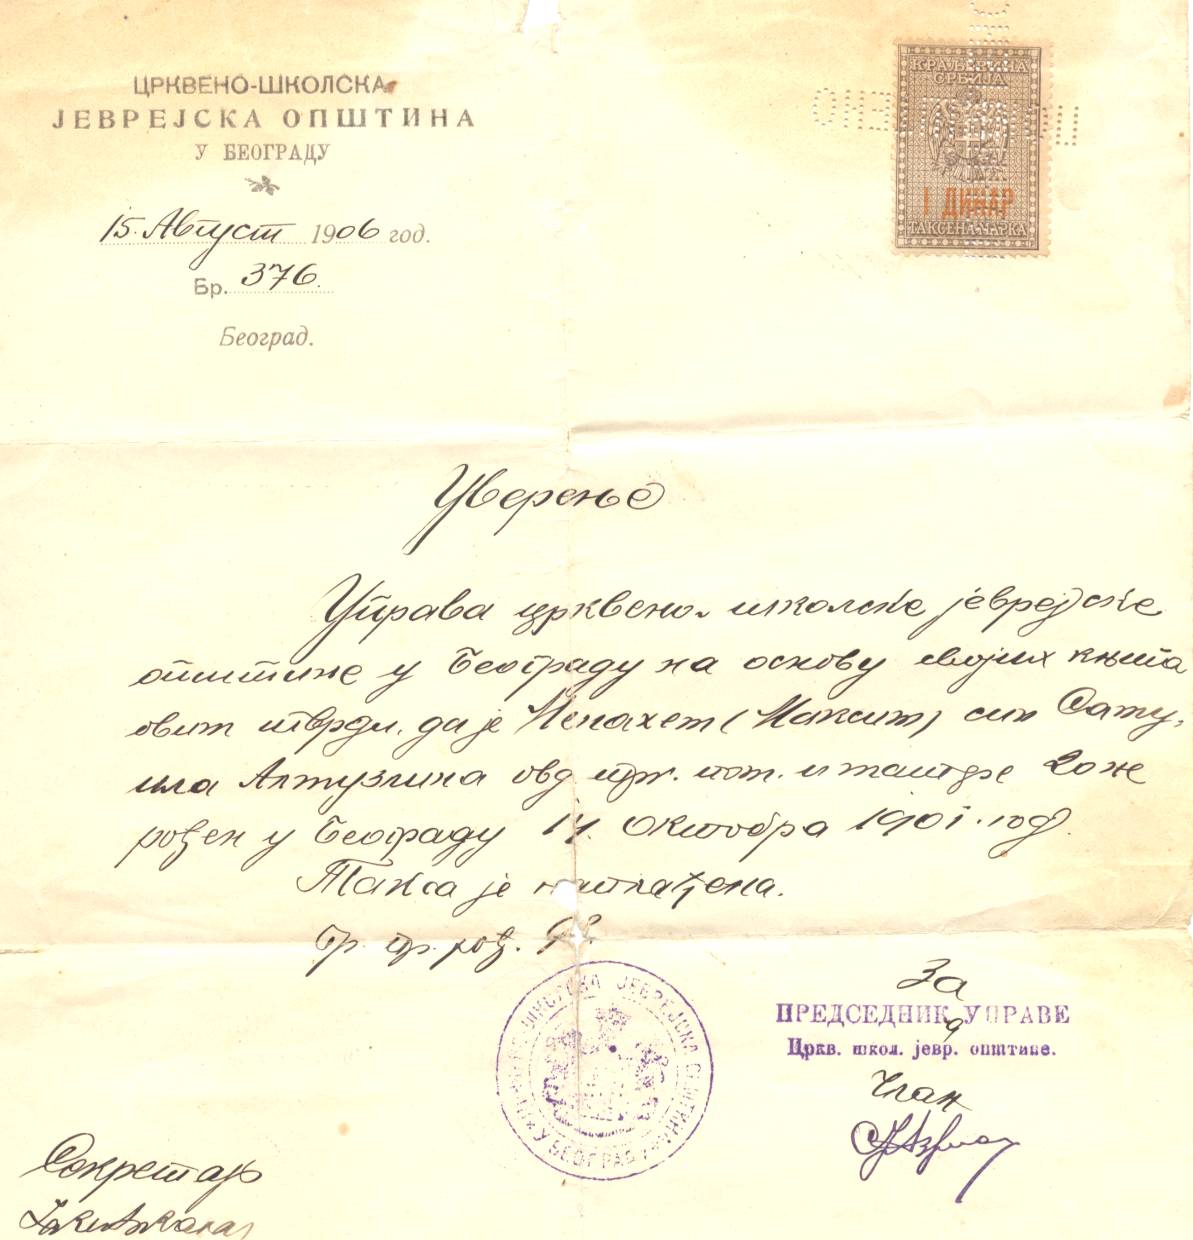 ЦРКВЕНО-ШКОЛСКА
ЈЕВРЕЈСКА ОПШТИНА
У БЕОГРАДУ
15. Август 1906 год.
Бр. 376.
Београд.
КРАЉЕВИНА
СРБИЈА
1 ДИНАР
ТАКСЕНА МАРКА
Уверење
Управа црквено-школске јеврејске
општине у Београду на основу својих књига
овим тврди, да је Менахем (Максим) син Саму-
ила Алтузина овд. и матере
рођен у Београду 14. Октобра 1901. год.
Такса је наплаћена.
Бр. пр. рођ.
ШКОЛСКА ЈЕВРЕЈСКА ОПШТИНА У БЕОГРАДУ
За
ПРЕДСЕДНИКА УПРАВЕ
Црkв. школ. јевр. општине.
Члан
Секретар